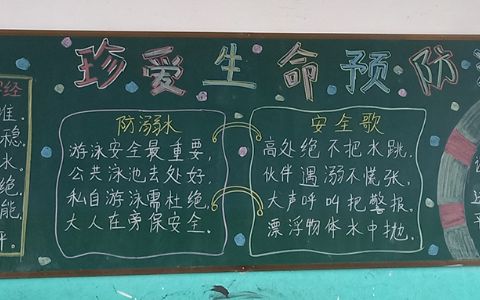 珍爱生命预防
经
准，
稳，
水，
绝，
能，
平。
防溺水
游泳安全最重要，
公共泳池去处好，
私自游泳需杜绝，
大人在旁保安全。
安全歌
高处绝不把水跳，
伙伴遇溺不慌张，
大声呼叫把警报，
漂浮物体水中抛。